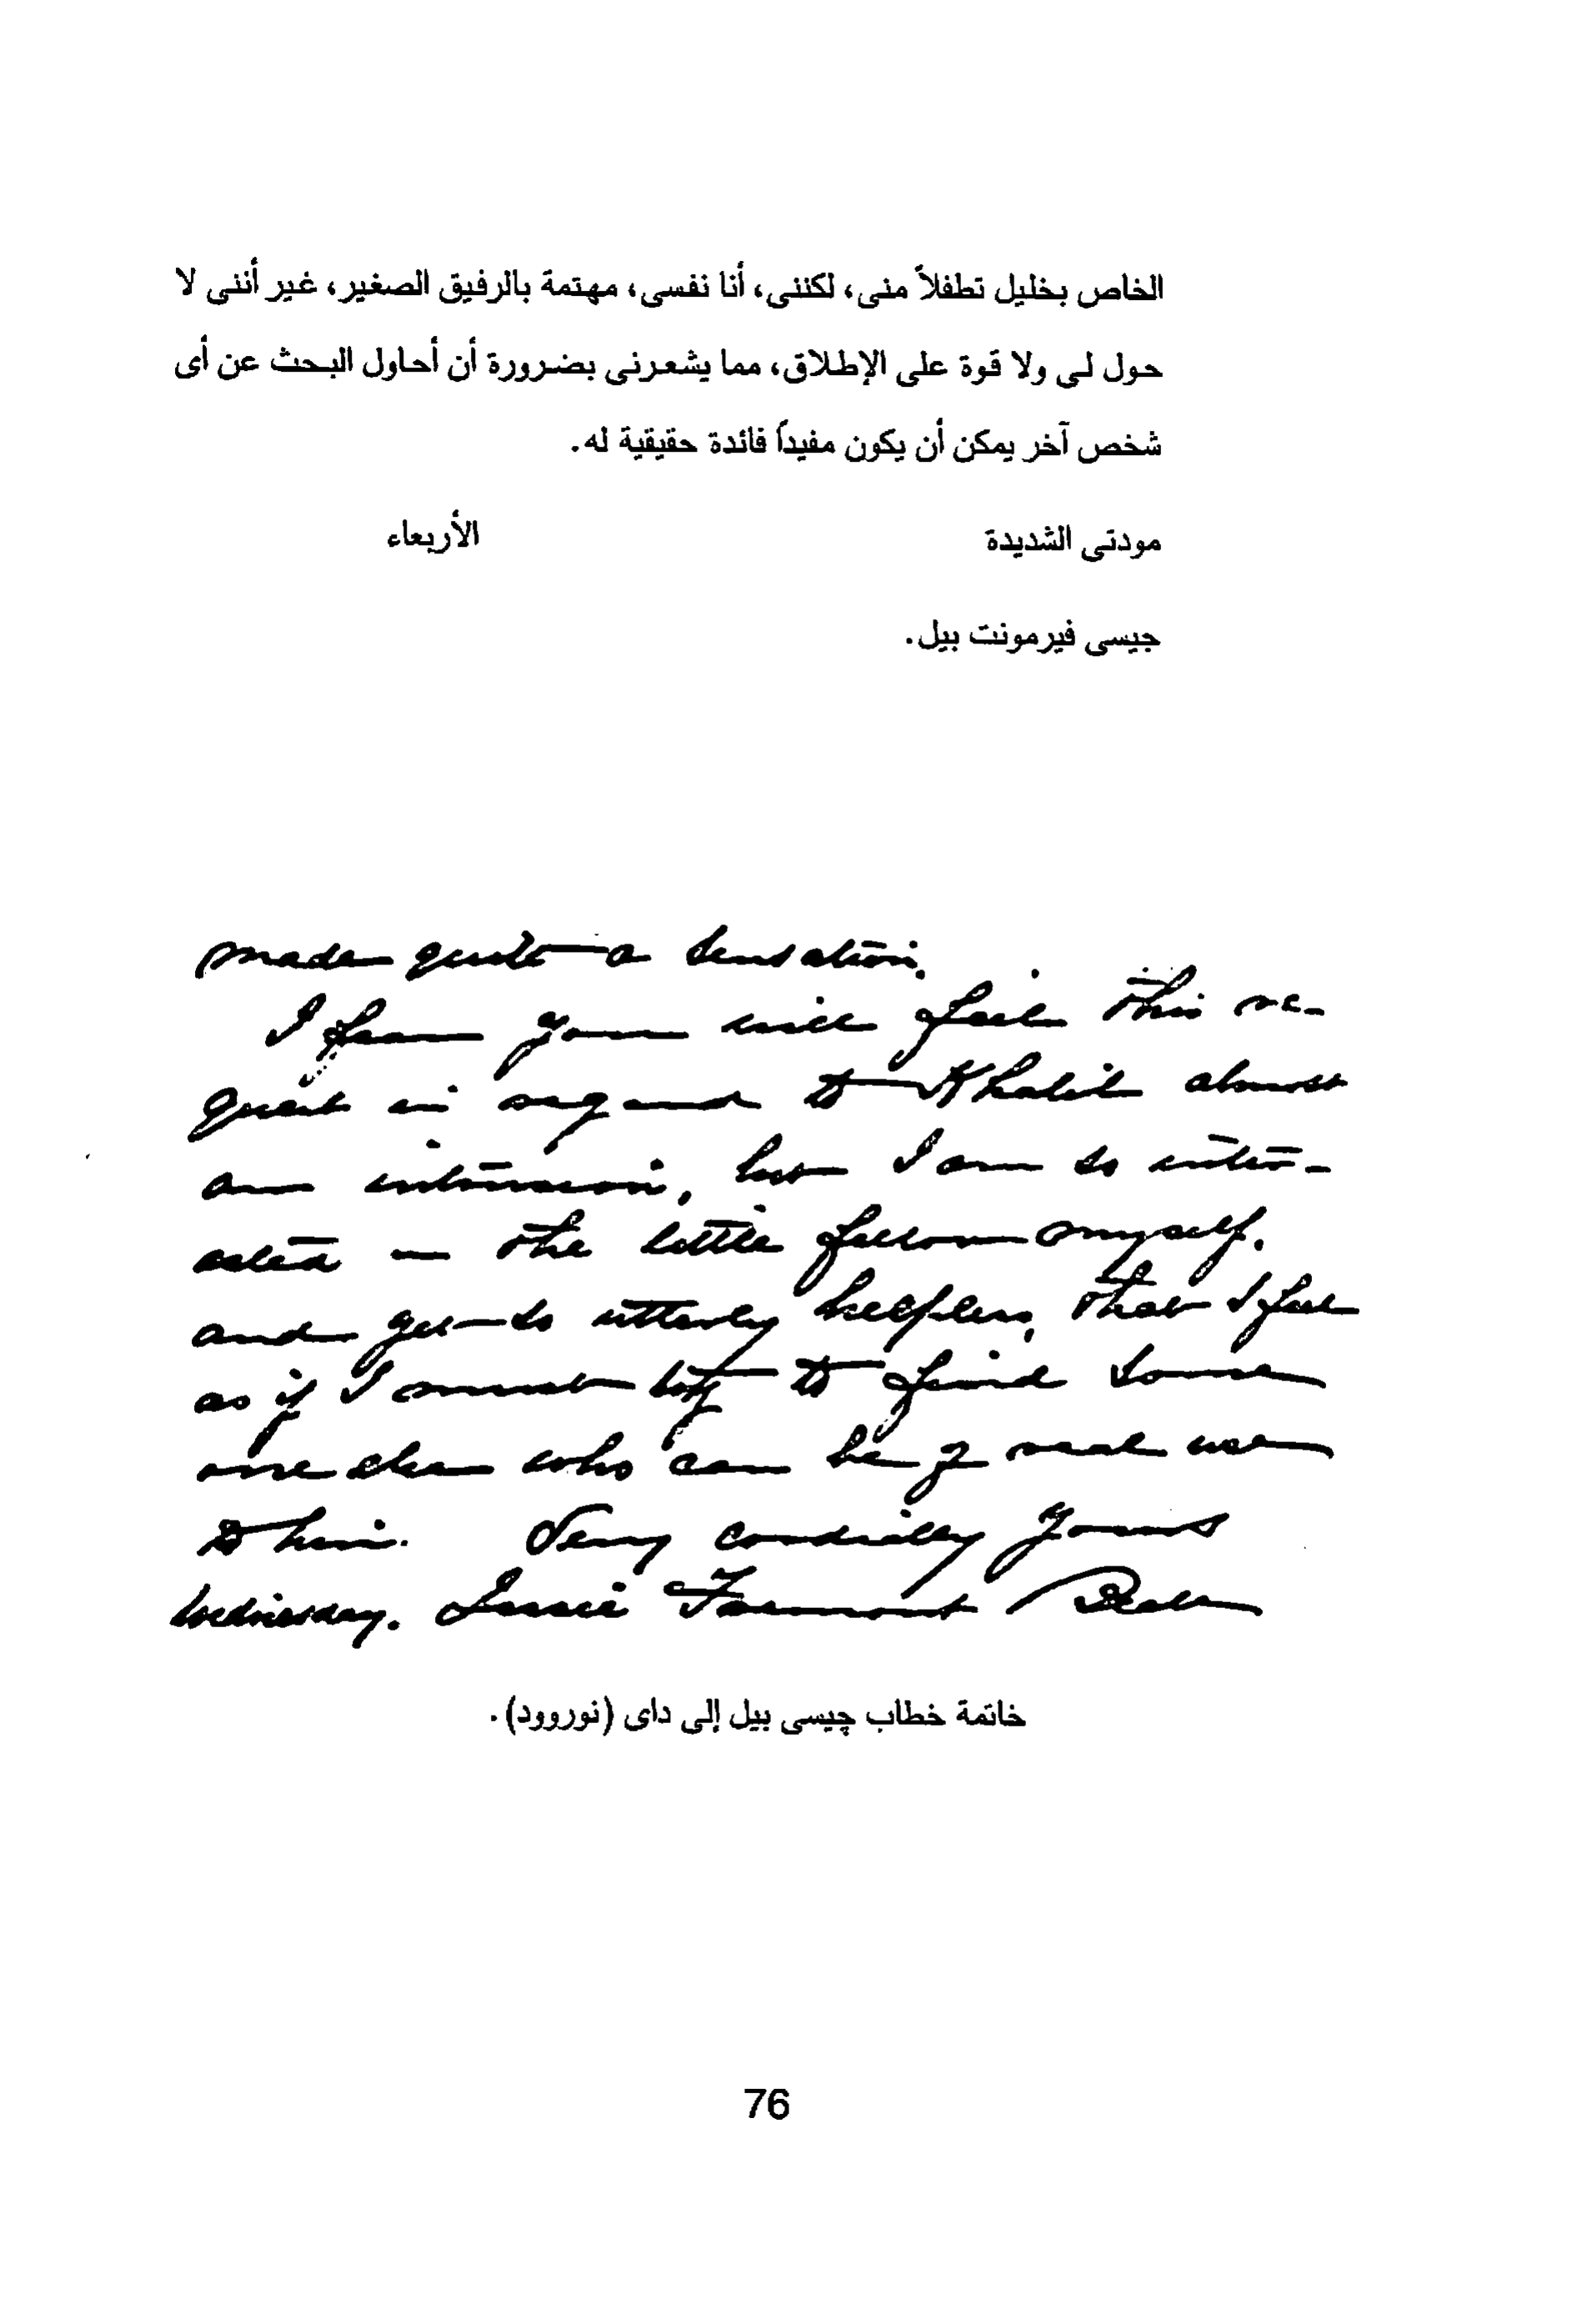 الخاص بخليل تطفلاً منى، لكننى، أنا نفسى، مهتمة بالرفيق الصغير، غير أننى لا
حول لى ولا قوة على الإطلاق، مما يشعرنى بضرورة أن أحاول البحث عن أى
شخص آخر يمكن أن يكون مفيداً فائدة حقيقية له.
مودتى الشديدة الأربعاء
جيسى فيرمونت بيل.
made quite a sensation.
I fear you will feel this re-
quest in regard to Khalil almost
an intrusion, but I am so inter-
ested in the little fellow myself,
and yet so utterly helpless, that I feel
as if I must try to find some
one else who can be of real use
to him. Very cordially yours
Wednesday. Jessie Fremont Beale
خاتمة خطاب چيسى بيل إلى داى (نوروود).
76